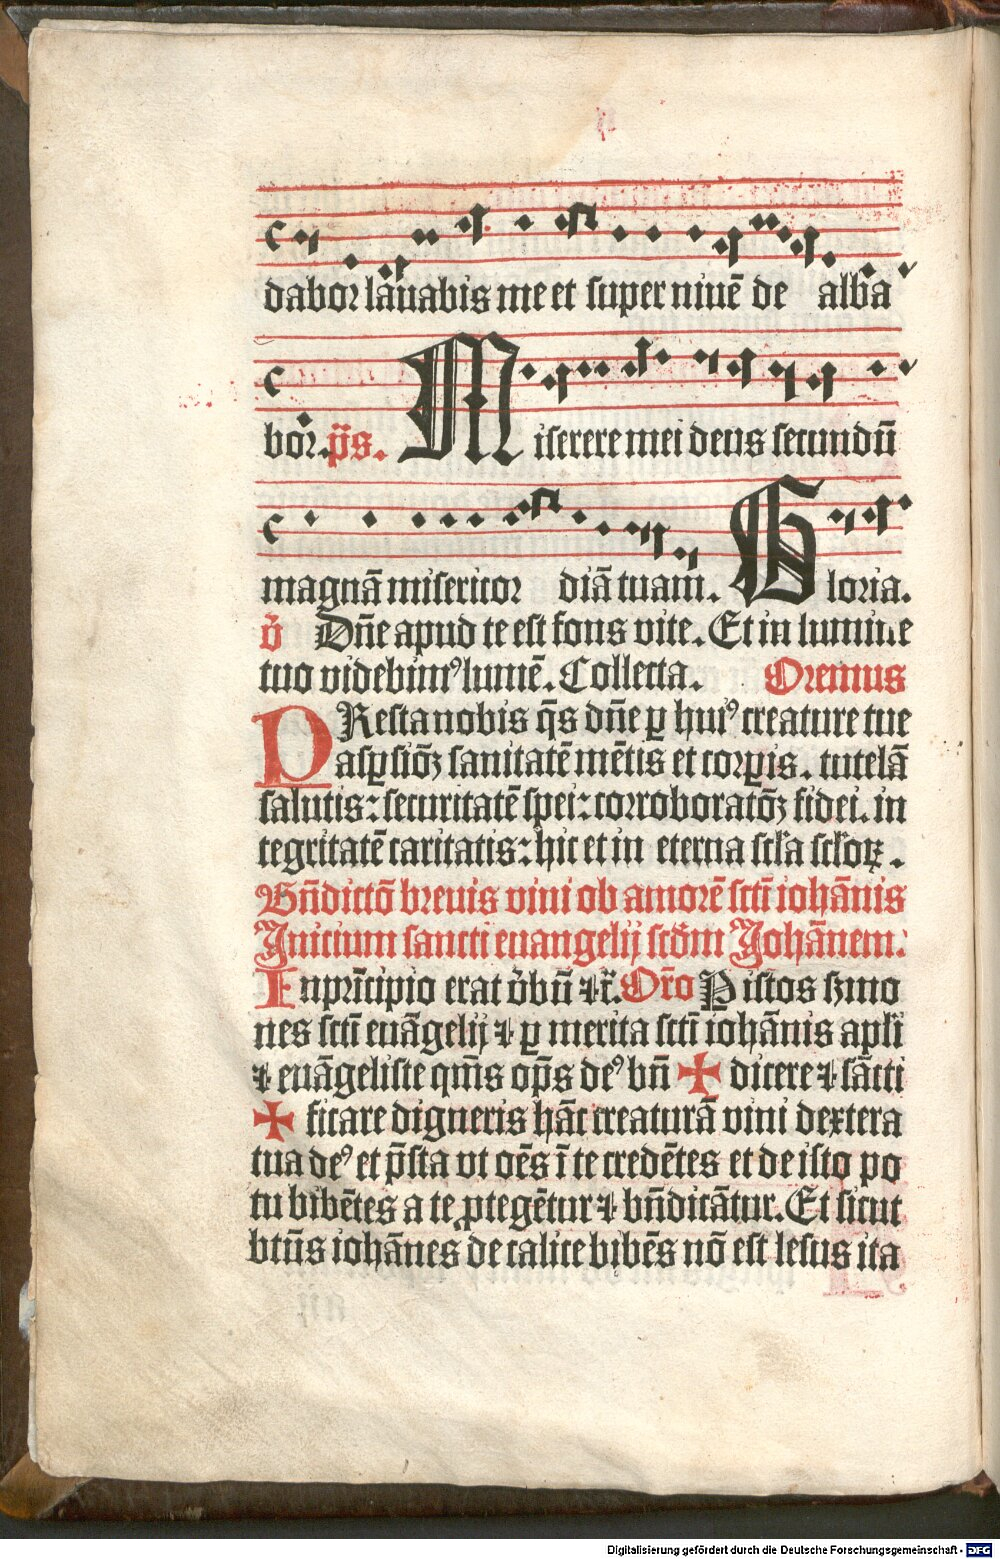 dabor lauabis me et super niuē de alba
bor. p̄s. Miserere mei deus secundū
magnā misericor diā tuam. Gloria.
v̓ Dn̄e apud te est fons vite. Et in lumine
tuo videbimꝰ lumē. Collecta. Oremus
PResta nobis q̄s dn̄e ꝑ huiꝰ creature tue
aspꝑsiōꝫ sanitatē mētis et corꝑis. tutelā
salutis: securitatē spei: corroboratōꝫ fidei. in
tegritatē caritatis: hic et in eterna sc̄la sc̄loꝝ.
Bn̄dictō breuis vini ob amorē sctī iohānis
Inicium sancti euangelij scd̄m Johānem.
In prīcipio erat v̓bū ⁊ r̄. Or̄o Pistos ẜmo
nes sctī euāgelij ⁊ ꝑ merita sctī iohānis apl̄i
⁊ euāgeliste qm̄s op̄s deꝰ bn̄ ✠ dicere ⁊ sācti
✠ ficare digneris hāc creaturā vini dextera
tua deꝰ et p̄sta vt oēs ī te credētes et de isto po
tu bibētes a te ꝓtegētur ⁊ bn̄dicātur. Et sicut
btūs iohānes de calice bibēs nō est lesus ita
Digitalisierung gefördert durch die Deutsche Forschungsgemeinschaft - DFG